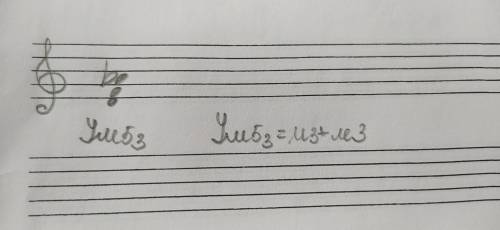 Умб₃ Умб₃=м3+м3